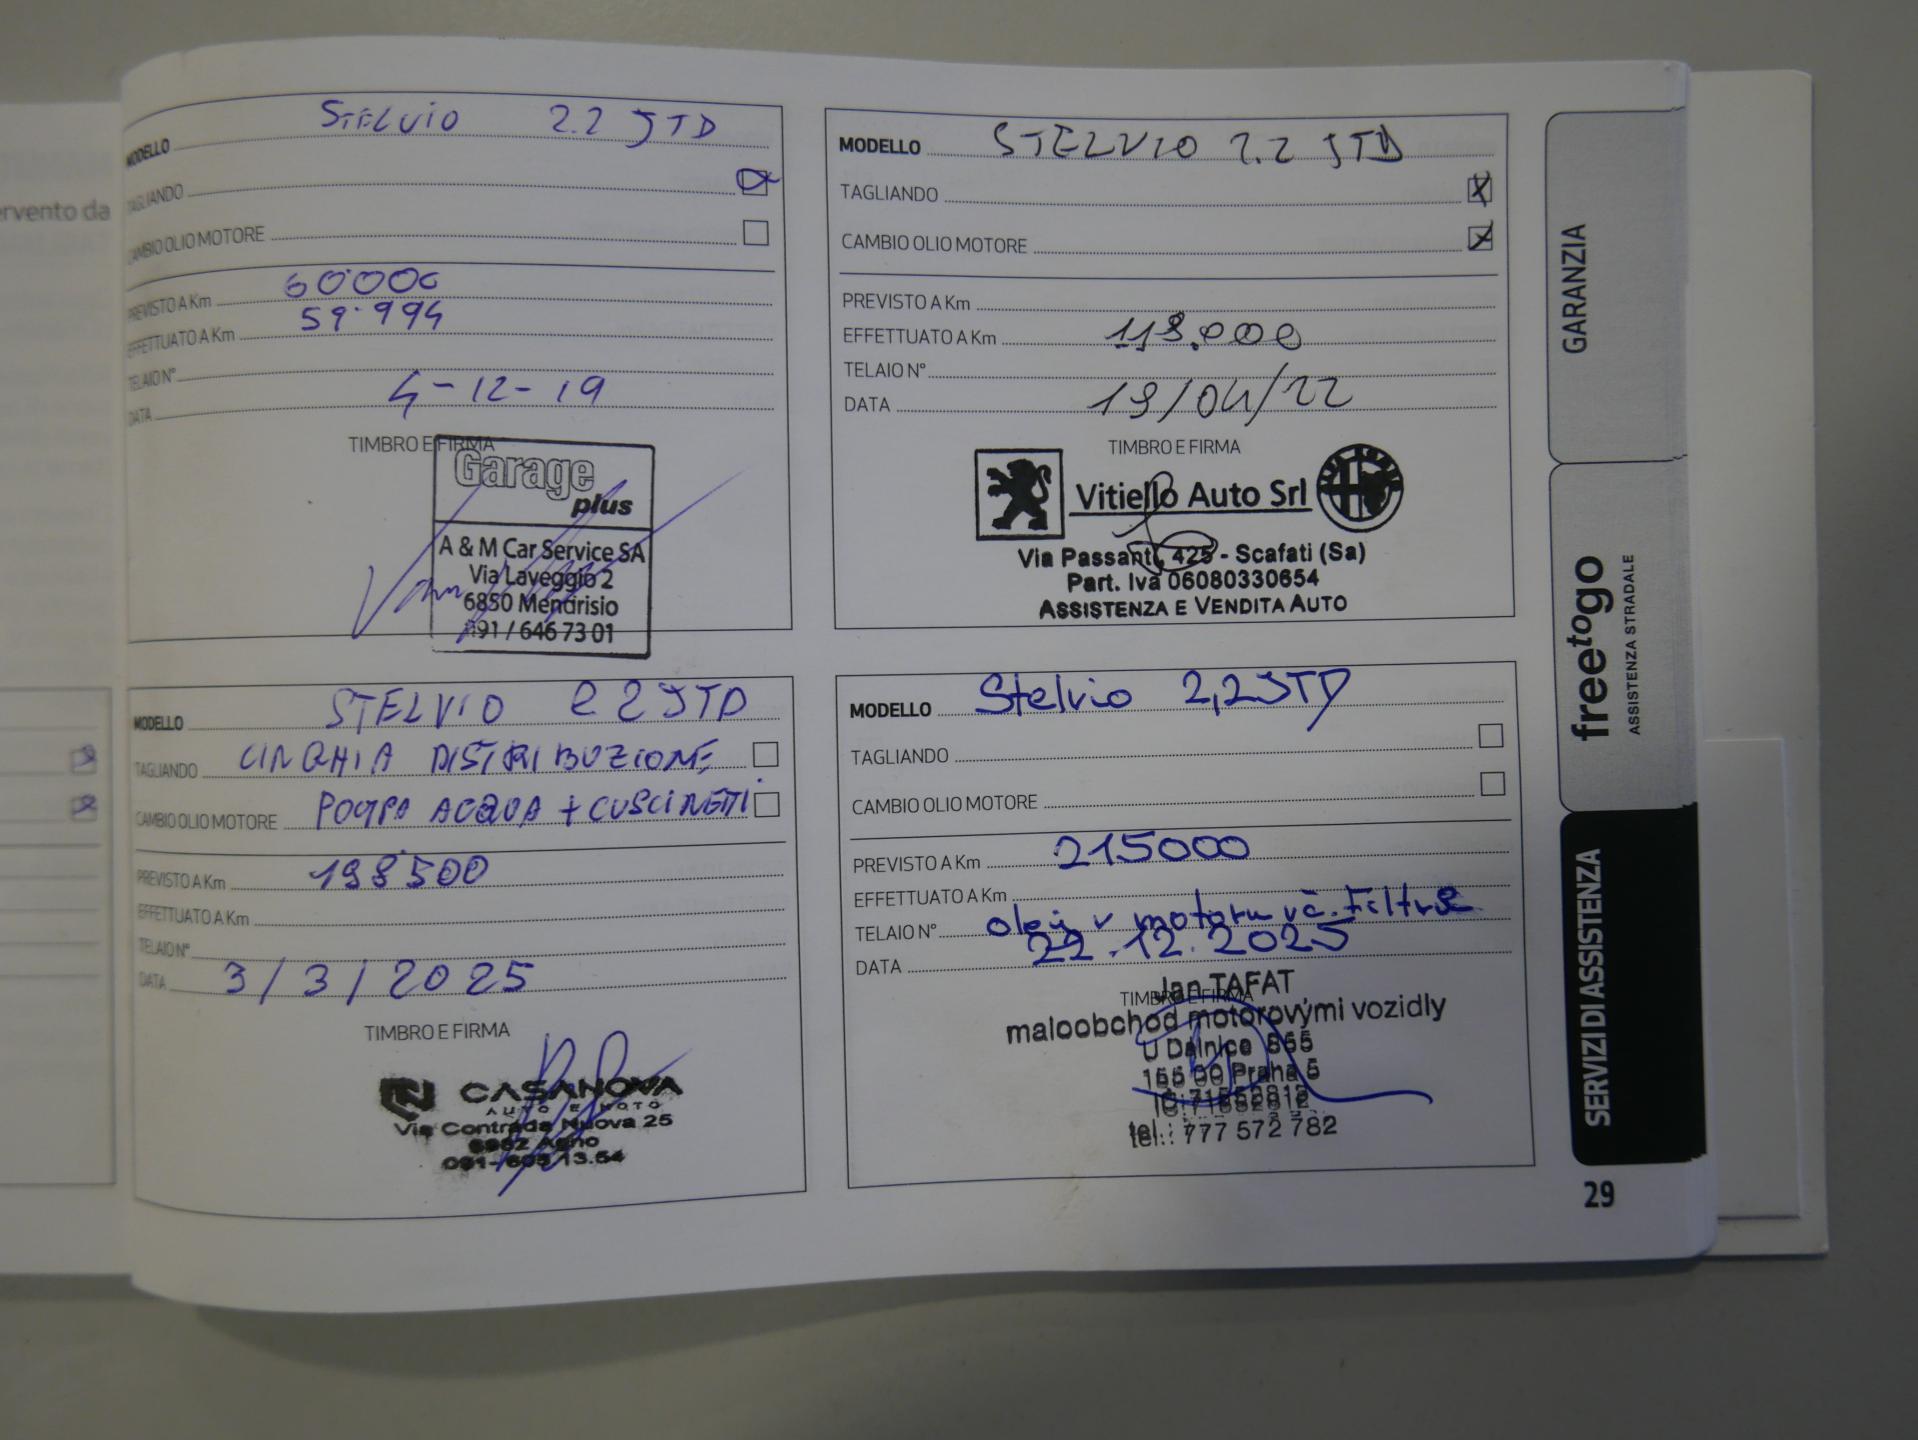 ervento da
MODELLO Stelvio 2.2 JTD
TAGLIANDO
CAMBIO OLIO MOTORE
PREVISTO A Km 60000
EFFETTUATO A Km 59.994
TELAIO N°
DATA 4-12-19
TIMBRO E FIRMA
Garage
plus
A & M Car Service SA
Via Laveggio 2
6850 Mendrisio
091 / 646 73 01
MODELLO STELVIO 2.2 JTD
TAGLIANDO X
CAMBIO OLIO MOTORE X
PREVISTO A Km
EFFETTUATO A Km 118.000
TELAIO N°
DATA 19/04/22
TIMBRO E FIRMA
Vitiello Auto Srl
Via Passanti, 425 - Scafati (Sa)
Part. Iva 06080330654
ASSISTENZA E VENDITA AUTO
MODELLO STELVIO 22 JTD
TAGLIANDO CINGHIA DISTRIBUZIONE
CAMBIO OLIO MOTORE POMPA ACQUA + CUSCINETTI
PREVISTO A Km 198500
EFFETTUATO A Km
TELAIO N°
DATA 3/3/2025
TIMBRO E FIRMA
CASANOVA
AUTO E MOTO
Via Contrada Nuova 25
6982 Agno
MODELLO Stelvio 2,2JTD
TAGLIANDO
CAMBIO OLIO MOTORE
PREVISTO A Km 215000
EFFETTUATO A Km
TELAIO N° olej v motoru vč. Filtru
DATA 22.12.2025
TIMBRO E FIRMA
Jan TAFAT
maloobchod motorovými vozidly
U Dálnice
155 00 Praha 5
tel.: 777 572 782
GARANZIA
freetogo
ASSISTENZA STRADALE
SERVIZI DI ASSISTENZA
29